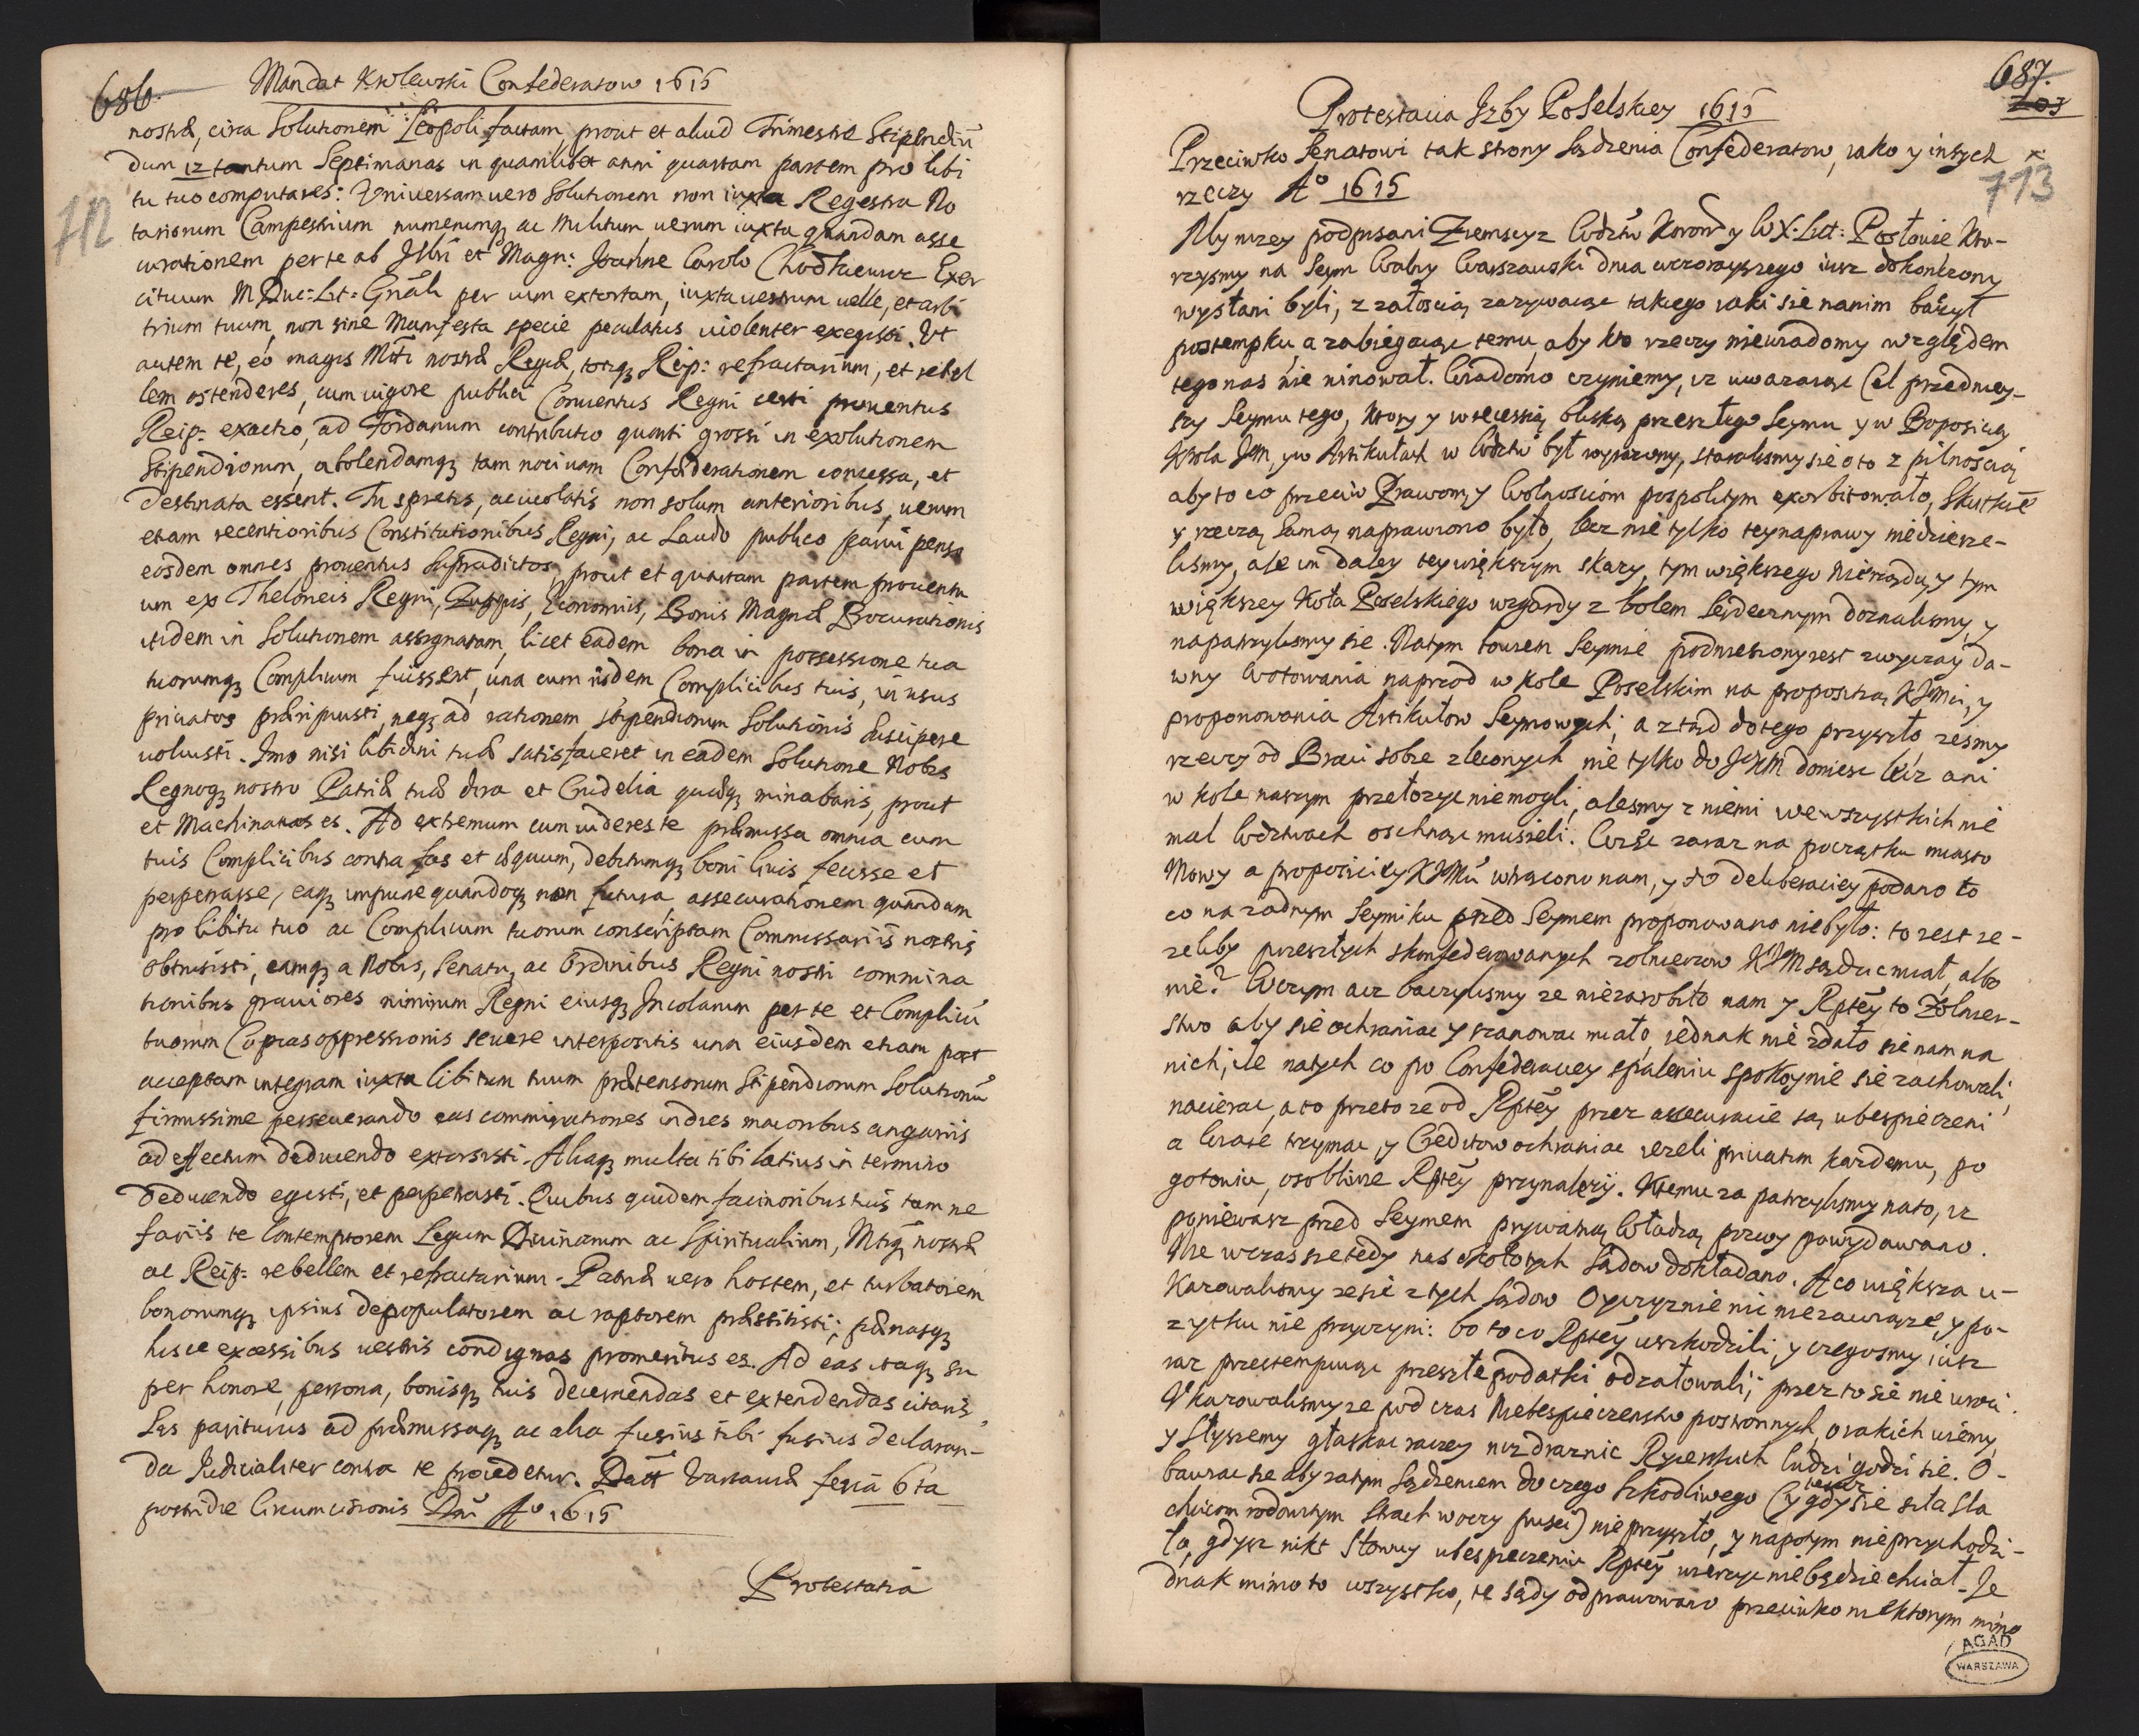 686.
Mandat Krolewski Confederatow 1615
712
nostrae, circa Solutionem Leopoli factam, prout et aliud Trimestre Stipendiū
dum 12 tantum Septimanas in quamlibet anni quartam partem pro libi
tu tuo computares: Vniuersam uero Solutionem non iuxta Regestra No
tariorum Campestrium numerumq3 ac Militum, uerum iuxta quandam asse
curationem per te ab Jllri et Magn: Joanne Carolo Chodkieuicz Exer
cituum M Duc: Lit: Gnāli per uim extortam, iuxta uestrum uelle, et arbi
trium tuum, non sine Manifesta specie peculatus uiolenter exegisti. Vt
autem te, eo magis Mtti nostrae Regiae, totiq3 Reip: refractarium, et rebel
lem ostenderes, cum uigore publici Conuentus Regni certi prouentus
Reip: exactio, ad Fordanum contributio quarti grossi in exolutionem
Stipendiorum, abolendamq3 tam nociuam Confaederationem concessa, et
destinata essent. Tu spretis, ac uiolatis non solum anterioribus, uerum
etiam recentioribus Constitutionibus Regni, ac Laudo publico parui pensa
eosdem omnes prouentus supradictos, prout et quartam partem prouentu
um ex Theloneis Regni, Zuppis, Economiis, Bonis Magnae Procurationis
itidem in Solutionem assignatam, licet eadem bona in possessione tua
tuorumq3 Complicum fuissent, una cum iisdem Complicibus tuis, in usus
priuatos praeripuisti, neq3 ad rationem stipendiorum Solutionis suscipere
uoluisti. Imo nisi libidini tuae satisfaceret in eadem Solutione Nobis
Regnoq3 nostro Patriae tuae dira et Crudelia quaeq3 minabaris, prout
et Machinatus es. Ad extremum cum uideres te praemissa omnia cum
tuis Complicibus contra fas et aequum, debitumq3 boni Ciuis fecisse et
perpetrasse, eaq3 impune quandoq3 non futura, assecurationem quandam
pro libitu tuo ac Complicum tuorum conscriptam Commissariis nostris
obtrusisti, eamq3 a Nobis, Senatu, ac Ordinibus Regni nostri commina
tionibus grauiores nimirum Regni eiusq3 Incolarum per te et Complicū
tuorum Copias oppressionis seuere interpositis una eiusdem etiam post
acceptam integram iuxta libitum tuum praetensorum Stipendiorum Solutionū
firmissime perseuerando eas commigrationes indies maioribus angariis
ad effectum deducendo extorsisti. Aliaq3 multa tibi latius in termino
deducendo egisti, et perpetrasti. Quibus quidem facinoribus tuis tam ne
fariis te Contemptorem Legum Diuinarum ac Spiritualium, Mtiq3 nostrae
ac Reip: rebellem et refractarium. Patriae uero hostem, et turbatorem
bonorumq3 ipsius depopulatorem ac raptorem praestitisti; paenasq3
hisce excessibus uestris condignas promeritus es. Ad eas itaq3 su
per honore, persona, bonisq3 tuis decernendas et extendendas citaris,
Las pariturus ad praemissaq3 ac alia fusius tibi fusius declaran-
da Judicialiter contra te procedetur. Datt Varsauiae feria 6ta
postridie Circumcisionis Dni Ao 1615
Protestatia
687.
203
713
Protestacia Jzby Poselskiey 1615
Przeciwko Senatowi tak strony Sądzenia Confederatow, iako y inszych
rzeczy Ao 1615
My nizey podpisani Ziemscy z Wdztw Korony y W X: Lit: Posłowie kto-
rzysmy na Seym Walny Warszawski dnia wczorayszego iusz dokonczony
wysłani byli, z załoscią zazywaiąc takiego iaki sie na nim bazył
postempku, a zabiegaiąc temu, aby kto rzeczy niewiadomy względem
tego nas nie winował. Wiadomo czyniemy, iz uwazaiąc Cel przedniey-
szy Seymu tego, ktory y w recessią bliską przeszłego Seymu y w Propositiey
Krola JM, y w Artikułach w Wdztw był wyrazony, staralismy sie o to z pilnoscią
aby to co przeciw Prawom, y Wolnosciom pospolitym exorbitowało, Skutkiē
y rzeczą samą naprawiono było, lecz nie tylko tey naprawy niedziesze-
lismy, ale im daley tey większym skazy, tym większego Nierządu, y tym
większey Koła Poselskiego wzgardy z bolem Serdecznym doznalismy, y
napatrzylismy sie. Na tym bowiem Seymie podniesiony iest zwyczay da-
wny Wotowania naprzod w kole Poselskim na propositią KJMci, y
proponowania Artikułow Seymowych; a ztąd do tego przyszło, zesmy
rzeczy od Braci sobie zleconych nie tylko do JKM doniesc lecz ani
w kole naszym przełozyc niemogli, alesmy z niemi we wszystkich nie
mal Wdztwach oschnąc musieli. Wsze zaraz na początku miasto
Mowy a propositiey KJMci wtrącono nam, y do deliberaciey podano to
co na zadnym Seymiku przed Seymem proponowano niebyło: to iest ie-
zeliby przeszłych skonfederowanych zołnierzow KJM sądzic miał, albo
nie? W czym acz baczylismy ze niezasobito nam y Rptēy to Zołnier-
stwo aby sie ochraniac y szanowac miało, iednak nie zdało sie nam na
nich, ile na tych co po Confederaciey spaleniu spokoynie sie zachowali,
nacierac, a to przeto ze od Rptēy przez assecuracie są ubespieczeni
a Wiare trzymac, y Creditow ochraniac iezeli priuatim kazdemu, po
gotowiu, osobliwie Rptēy przynalezy. K temu zapatrzylismy na to, iz
poniewasz przed Seymem prywatną Władzą pozwy powydawano.
Nie wczas sie tedy nas o koło tych Sądow dokładano. A co większa u-
kazowalismy ze sie z tych Sądow Oyczyznie nic niezawiąze, y po-
zytku nie przyczyni: bo to co Rptēy uszkodzili, y czegosmy iusz
raz przestempuiąc przeszłe podatki odzałowali, przez to sie nie uroci.
Ukazowalismy ze pod czas Niebespieczenstw postronnych, o iakich wiemy,
y Słyszemy głaskac raczey niz draznic Rycerskich ludzi godzi sie. O-
bawiac sie aby za tym Sądzeniem do czego szkodliwego (y gdy sie teraz siła sla
chcicom rodowitym strach w oczy pusci) nie przyszło, y napotym nieprzychodzi-
ło, gdysz nikt słowu ubespieczeniu Rptēy wierzyc niebędzie chciał. Je
dnak mimo to wszystko, te sądy odprawowano przeciwko niektorym mimo
AGAD
WARSZAWA